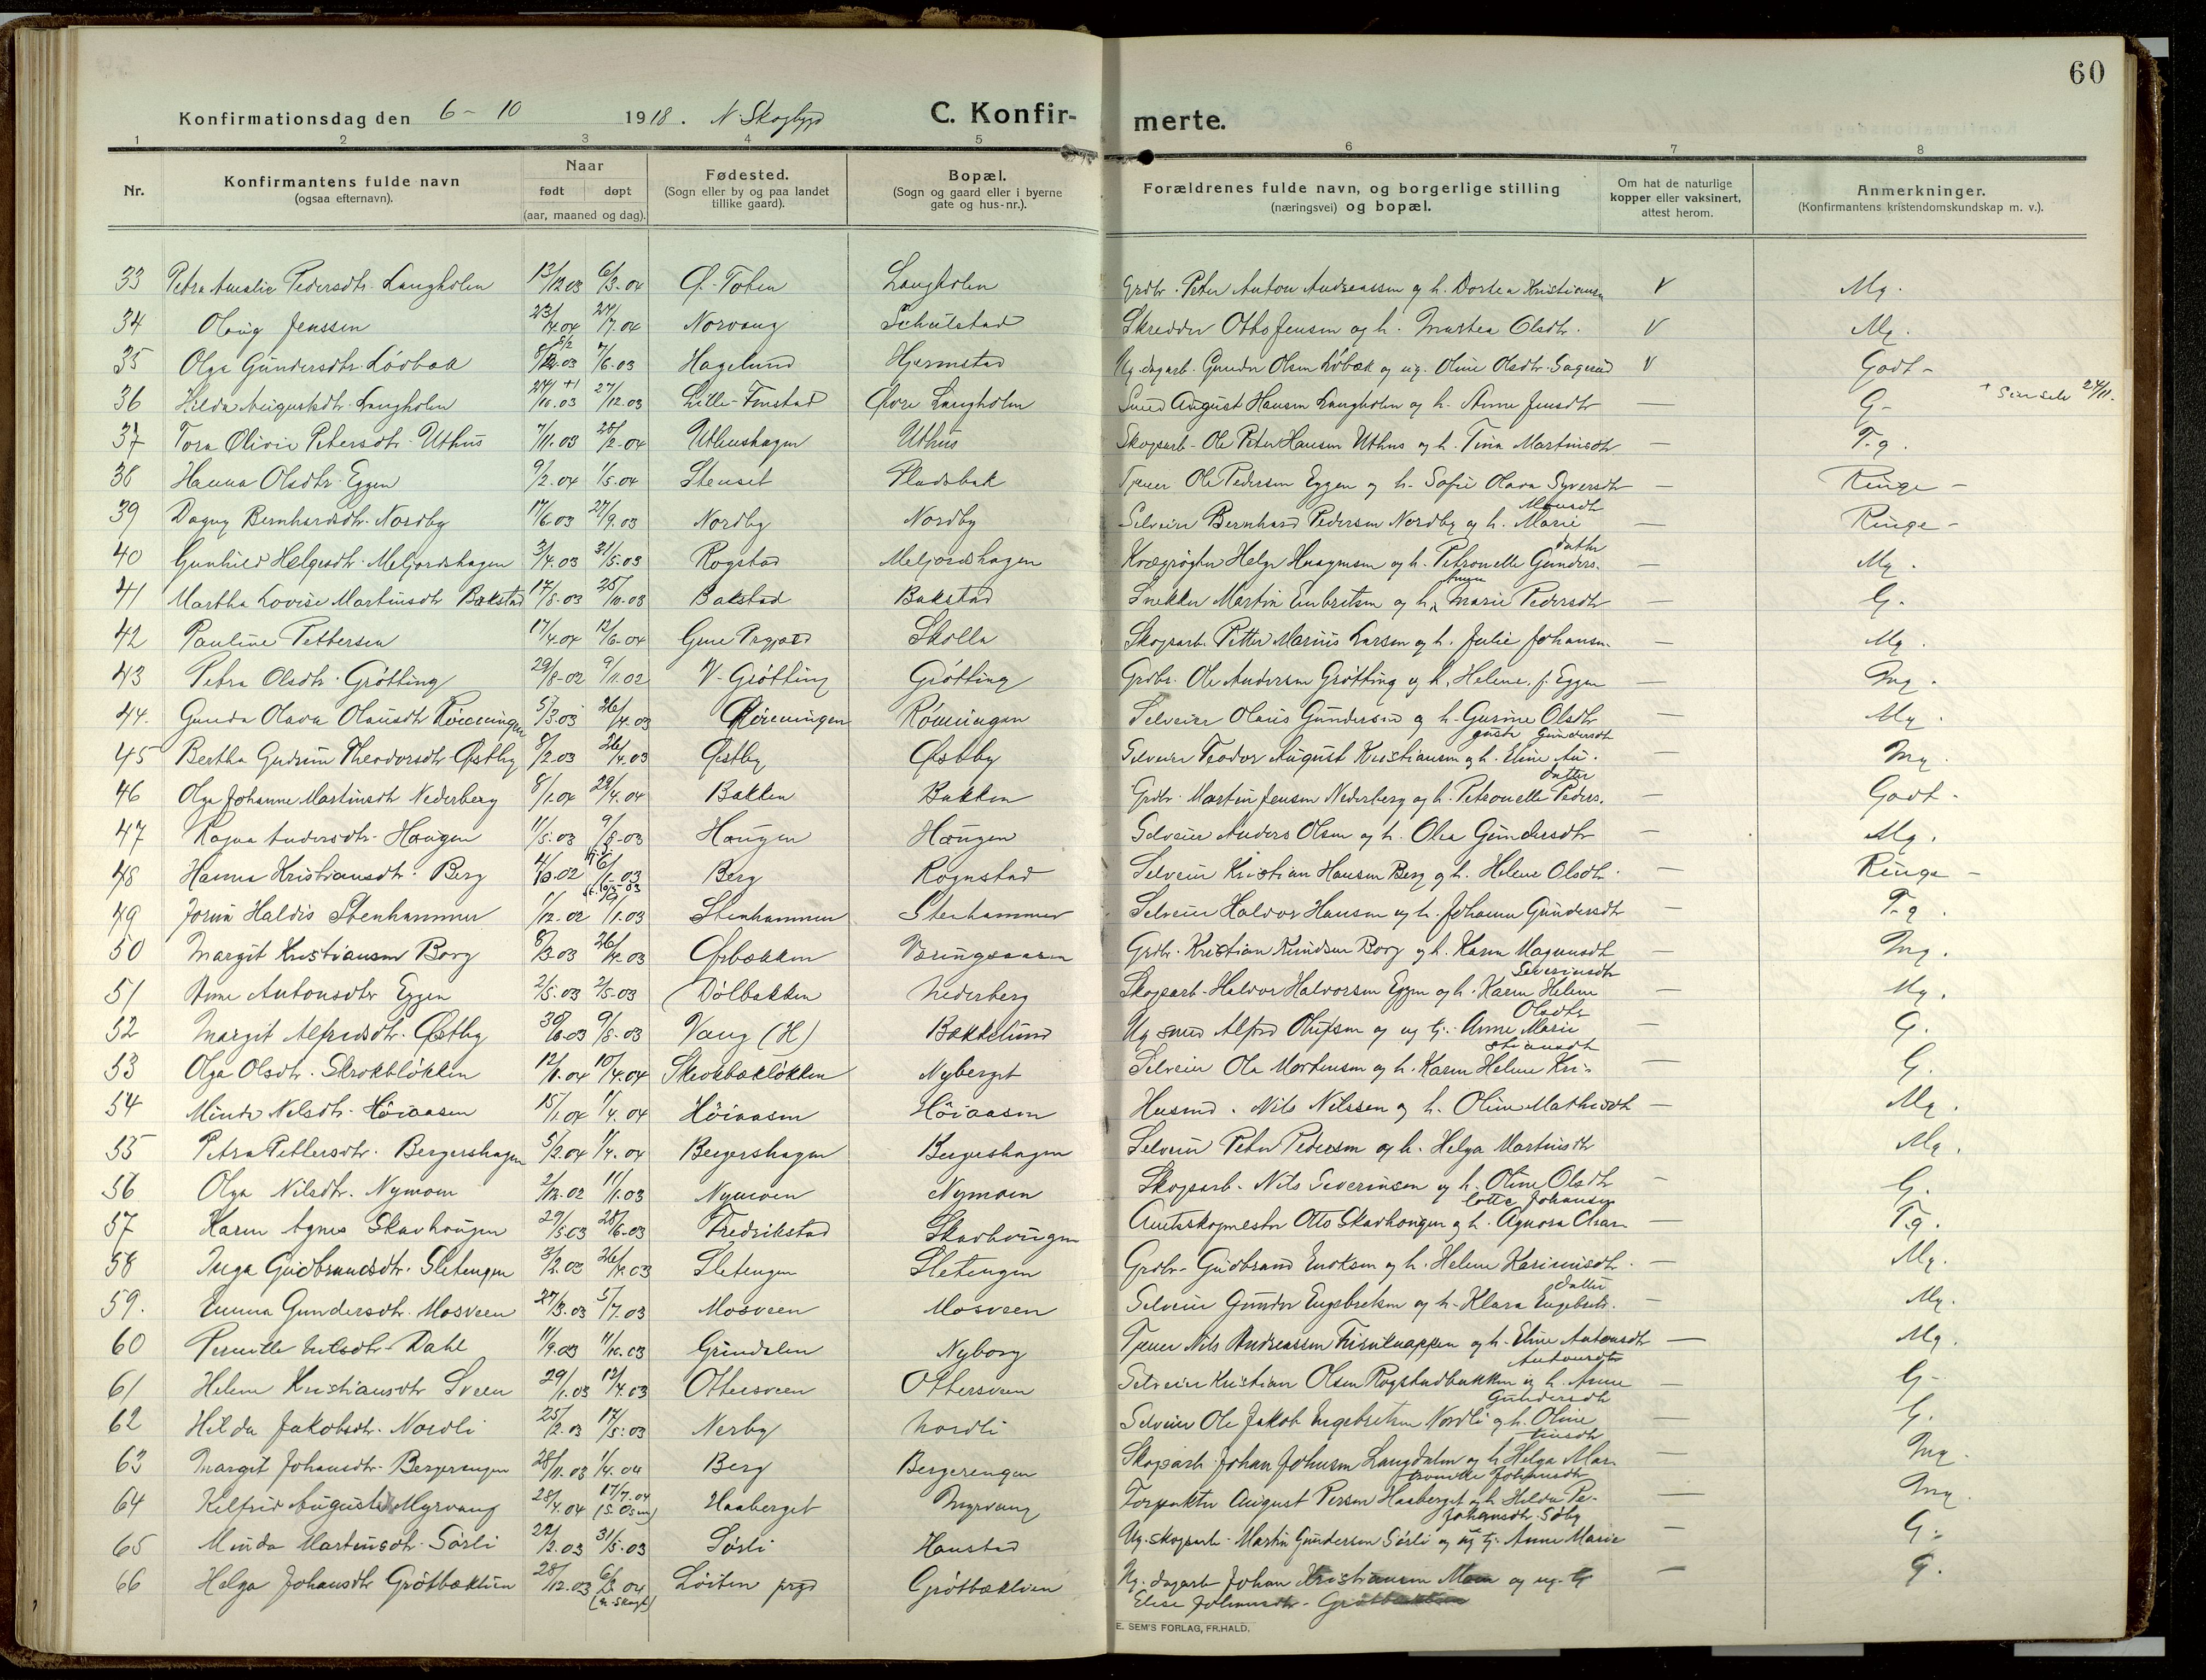 60
Konfirmationsdag den 6 - 10 1918. N. Skogbygd C. Konfirmerte.
1 2 3 4 5 6 7 8
Nr. Konfirmantens fulde navn (ogsaa efternavn). Naar født døpt (aar, maaned og dag). Fødested. (Sogn eller by og paa landet tillike gaard). Bopæl. (Sogn og gaard eller i byerne gate og hus-nr.). Forældrenes fulde navn, og borgerlige stilling (næringsvei) og bopæl. Om hat de naturlige kopper eller vaksinert, attest herom. Anmerkninger. (Konfirmantens kristendomskundskap m. v.).
33 Petra Amalie Pedersdtr. Langholen 13/12 03 6/3-04 Ø. Toten Langholen Grdbr. Peter Anton Andreassen og h. Dortea Kristiansen V Mg.
34 Olaug Jenssen 23/4.04 24/7.04 Norvang Schulstad Skredder Otto Jensen og h. Martea Olsdtr. V Mg.
35 Olga Gundersdtr. Lövbak 7/6-03 Hagelund Hjermstad Ug. dagarb. Gunder Olsen Löbak og ug. Oline Olsdtr. Sagesud V Godt -
36 Hilda Augustsdtr. Langholen 27/12.03 Lille-Finstad Øvre Langholen Smed August Hansen Langholen og h. Anne Jensdtr — G - + 24/11.
37 Tora Olivie Petersdtr. Uthus 7/11.03 28/2-04 Uthushagen Uthus Skogsarb. Ole Peter Hansen Uthus og h. Tina Martinsdtr — T.g.
38 Hanna Olsdtr. Eggen 9/2.04 1/5.04 Stenset Pladsbak Tjener Ole Pedersen Eggen og h. Sofie Olava Syversdtr — Ringe -
39 Dagny Bernhardsdtr. Nordby 17/6.03 27/9.03 Nordby Nordby Selveier Bernhard Pedersen Nordby og h. Marie Monsdtr — Ringe -
40 Gunhild Helgesdtr. Meljordshagen 3/4.03 31/5-03 Rogstad Meljordshagen Kreaprögter Helge Haagensen og h. Petronelle Gundersdatter — Mg.
41 Martha Lovise Martinsdtr Bakstad 17/8-03 25/10-03 Bakstad Bakstad Snekker Martin Embretsen og h. Anne Marie Pedersdtr — G.
42 Pauline Pettersen 17/4.04 12/6-04 Skolla Skogsarb. Petter Marius Larsen og h. Julie Johansen — Mg.
43 Petra Olsdtr. Grötting 29/8-02 9/11.02 V-Grötting Grötting Grdbr. Ole Andersen Grötting og h. Helene f. Eggen — Mg.
44. Gunda Olava Olausdtr Römingen 5/3.03 26/4.03 Römingen Römingen Selveier Olaus Gundersen og h. Gurine Olsdtr — Mg.
45 Bertha Gudrun Theodorsdtr Østby 8/2.03 26/4.03 Østby Østby Selveier Teodor August Kristiansen og h. Eline Auguste Gundersdtr — Mg.
46 Olga Johanne Martinsdtr Nederberg 8/1.04 29/4.04 Bakken Bakken Grdbr. Martin Jensen Nederberg og h. Petronelle Pedersdatter — Godt.
47 Ragna Andersdtr. Haugen 11/5.03 9/8-03 Haugen Haugen Selveier Anders Olsen og h. Olea Gundersdtr — Mg.
48 Hanna Kristiansdtr. Berg 6/1-03 Berg Rognstad Selveier Kristian Hansen Berg og h. Helene Olsdtr. — Ringe -
49 Jorun Haldis Stenhammer 1/12.02 /1.03 Stenhammer Stenhammer Selveier Haldor Hansen og h. Johanne Gundersdtr — T.g.
50 Margit Kristiansen Borg 8/3.03 26/4-03 Ørbakken Grdbr. Kristian Knudsen Borg og h. Karen Magnusdtr — Mg.
51 Anne Antonsdtr Eggen 2/5.03 2/5-03 Dölbakken Nederberg Skogsarb. Halvor Halvorsen Eggen og h. Karen Helene Severinsdtr — Mg.
52 Margit Alfredsdtr. Østby 30/6.03 9/8-03 Vang (H) Bakkelund Ug smed Alfred Olufsen og ug tj. Anne Marie Olsdtr — G.
53 Olga Olsdtr. Skrokblökken 12/1.04 10/4.04 Skrokbækløkken Nyberget Selveier Ole Mortensen og h. Karen Helene Kristiansdtr — G.
54 Minda Nilsdtr. Höiaasen 15/1.04 1/4.04 Höiaasen Höiaasen Husmd. Nils Nilssen og h. Oline Mathisdtr — Mg.
55 Petra Pettersdtr. Bergershagen 5/2.04 1/4.04 Bergershagen Bergershagen Selveier Peter Pedersen og h. Helga Martinsdtr Mg.
56 Olga Nilsdtr. Nymoen 2/12.02 11/1.03 Nymoen Nymoen Skogsarb. Nils Severinsen og h. Oline Olsdtr — G.
57 Karen Agnes Skavhaugen 29/5.03 28/6-03 Fredrikstad Skavhaugen Amtsskogmester Otto Skavhaugen og h. Agnora Charlotte Johansen — T.g.
58 Inga Gudbrandsdtr. Sletengen 3/2.03 26/4.03 Sletengen Sletengen Grdbr. Gudbrand Enoksen og h. Helene Karinusdtr. — Mg.
59. Emma Gundersdtr. Mosveen 27/3.03 5/7.03 Mosveen Mosveen Selveier Gunder Engebretsen og h. Klara Engebretsdatter — Mg.
60 Pernille Nilsdtr. Dahl 11/9.03 11/10.03 Grindalen Nyborg Tjener Nils Andreassen og h. Eline Antonsdtr — Mg.
61 Helene Kristiansdtr Sveen 29/1.03 12/4.03 Ottersveen Ottersveen Selveier Kristian Olsen Rogstadbakken og h. Anne Antonsdtr — G-
62 Hilda Jakobsdtr. Nordli 25/2.03 17/5.03 Nerby Nordli Selveier Ole Jakob Engebretsen Nordli og h. Oline Gundersdtr — G.
63 Margit Johansdtr. Bergerengen 28/11.03 1/4.04 Berg Bergerengen Skogsarb. Johan Johnsen Langdalen og h. Helga Martinsdtr — Mg.
64 Kilfrid Auguste Myrvang 28/4.04 17/7.04 (S. Osen) Haaberget Myrvang Forpakter August Persen Haaberget og h. Hilda Petronelle Johansdtr — Mg.
65 Minda Martinsdtr. Sörli 22/2.03 31/5.03 Sörli Haustad Ug. skogsarb. Martin Gundersen Sörli og ug tj. Anne Marie Johansdtr. Søby — G.
66 Helga Johansdtr Grötbæklien 28/12.03 6/3 04 (N. Skogb) Löiten prgd Grötbæklien Ug. dagarb Johan Kristiansen Moen og ug. tj. Elise Johansdtr. Grötbæklien — G.
E. SEM'S FORLAG, FR.HALD.